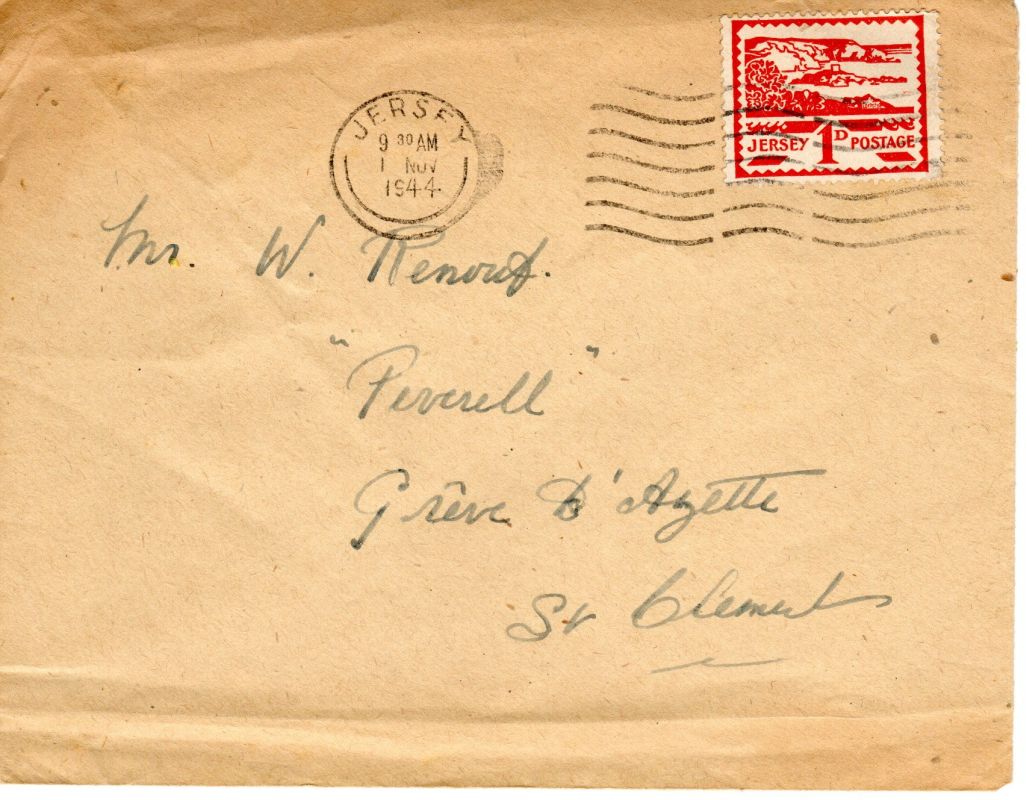 JERSEY
9 30 AM
1 NOV
1944
JERSEY 1D POSTAGE
Mr. W. Renouf.
"Peverell"
Grêve D'Azette
St Clement